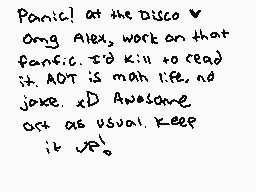 Panic! at the Disco ♥
Omg Alex, work on that
fanfic. I'd kill to read
it. AOT is mah life, no
joke. xD Awesome
art as usual. Keep
it up!